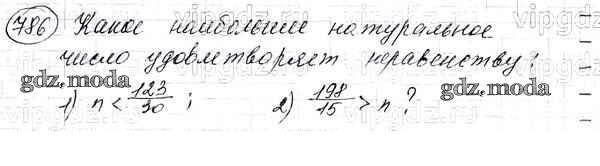 786 Какое наибольшее натуральное
число удовлетворяет неравенству:
gdz.moda
1) n < 123/30 ; 2) 198/15 > n ?
gdz.moda